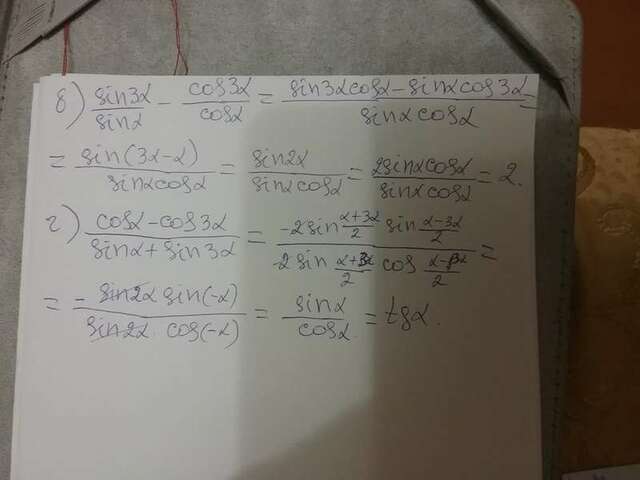 б) sin3α/sinα - cos3α/cosα = (sin3αcosα - sinαcos3α)/(sinαcosα) =
= sin(3α-α)/(sinαcosα) = sin2α/(sinαcosα) = 2sinαcosα/(sinαcosα) = 2.
г) (cosα - cos3α)/(sinα + sin3α) = (-2sin (α+3α)/2 sin (α-3α)/2)/(2sin (α+3α)/2 cos (α-3α)/2) =
= (-sin2α sin(-α))/(sin2α · cos(-α)) = sinα/cosα = tgα.